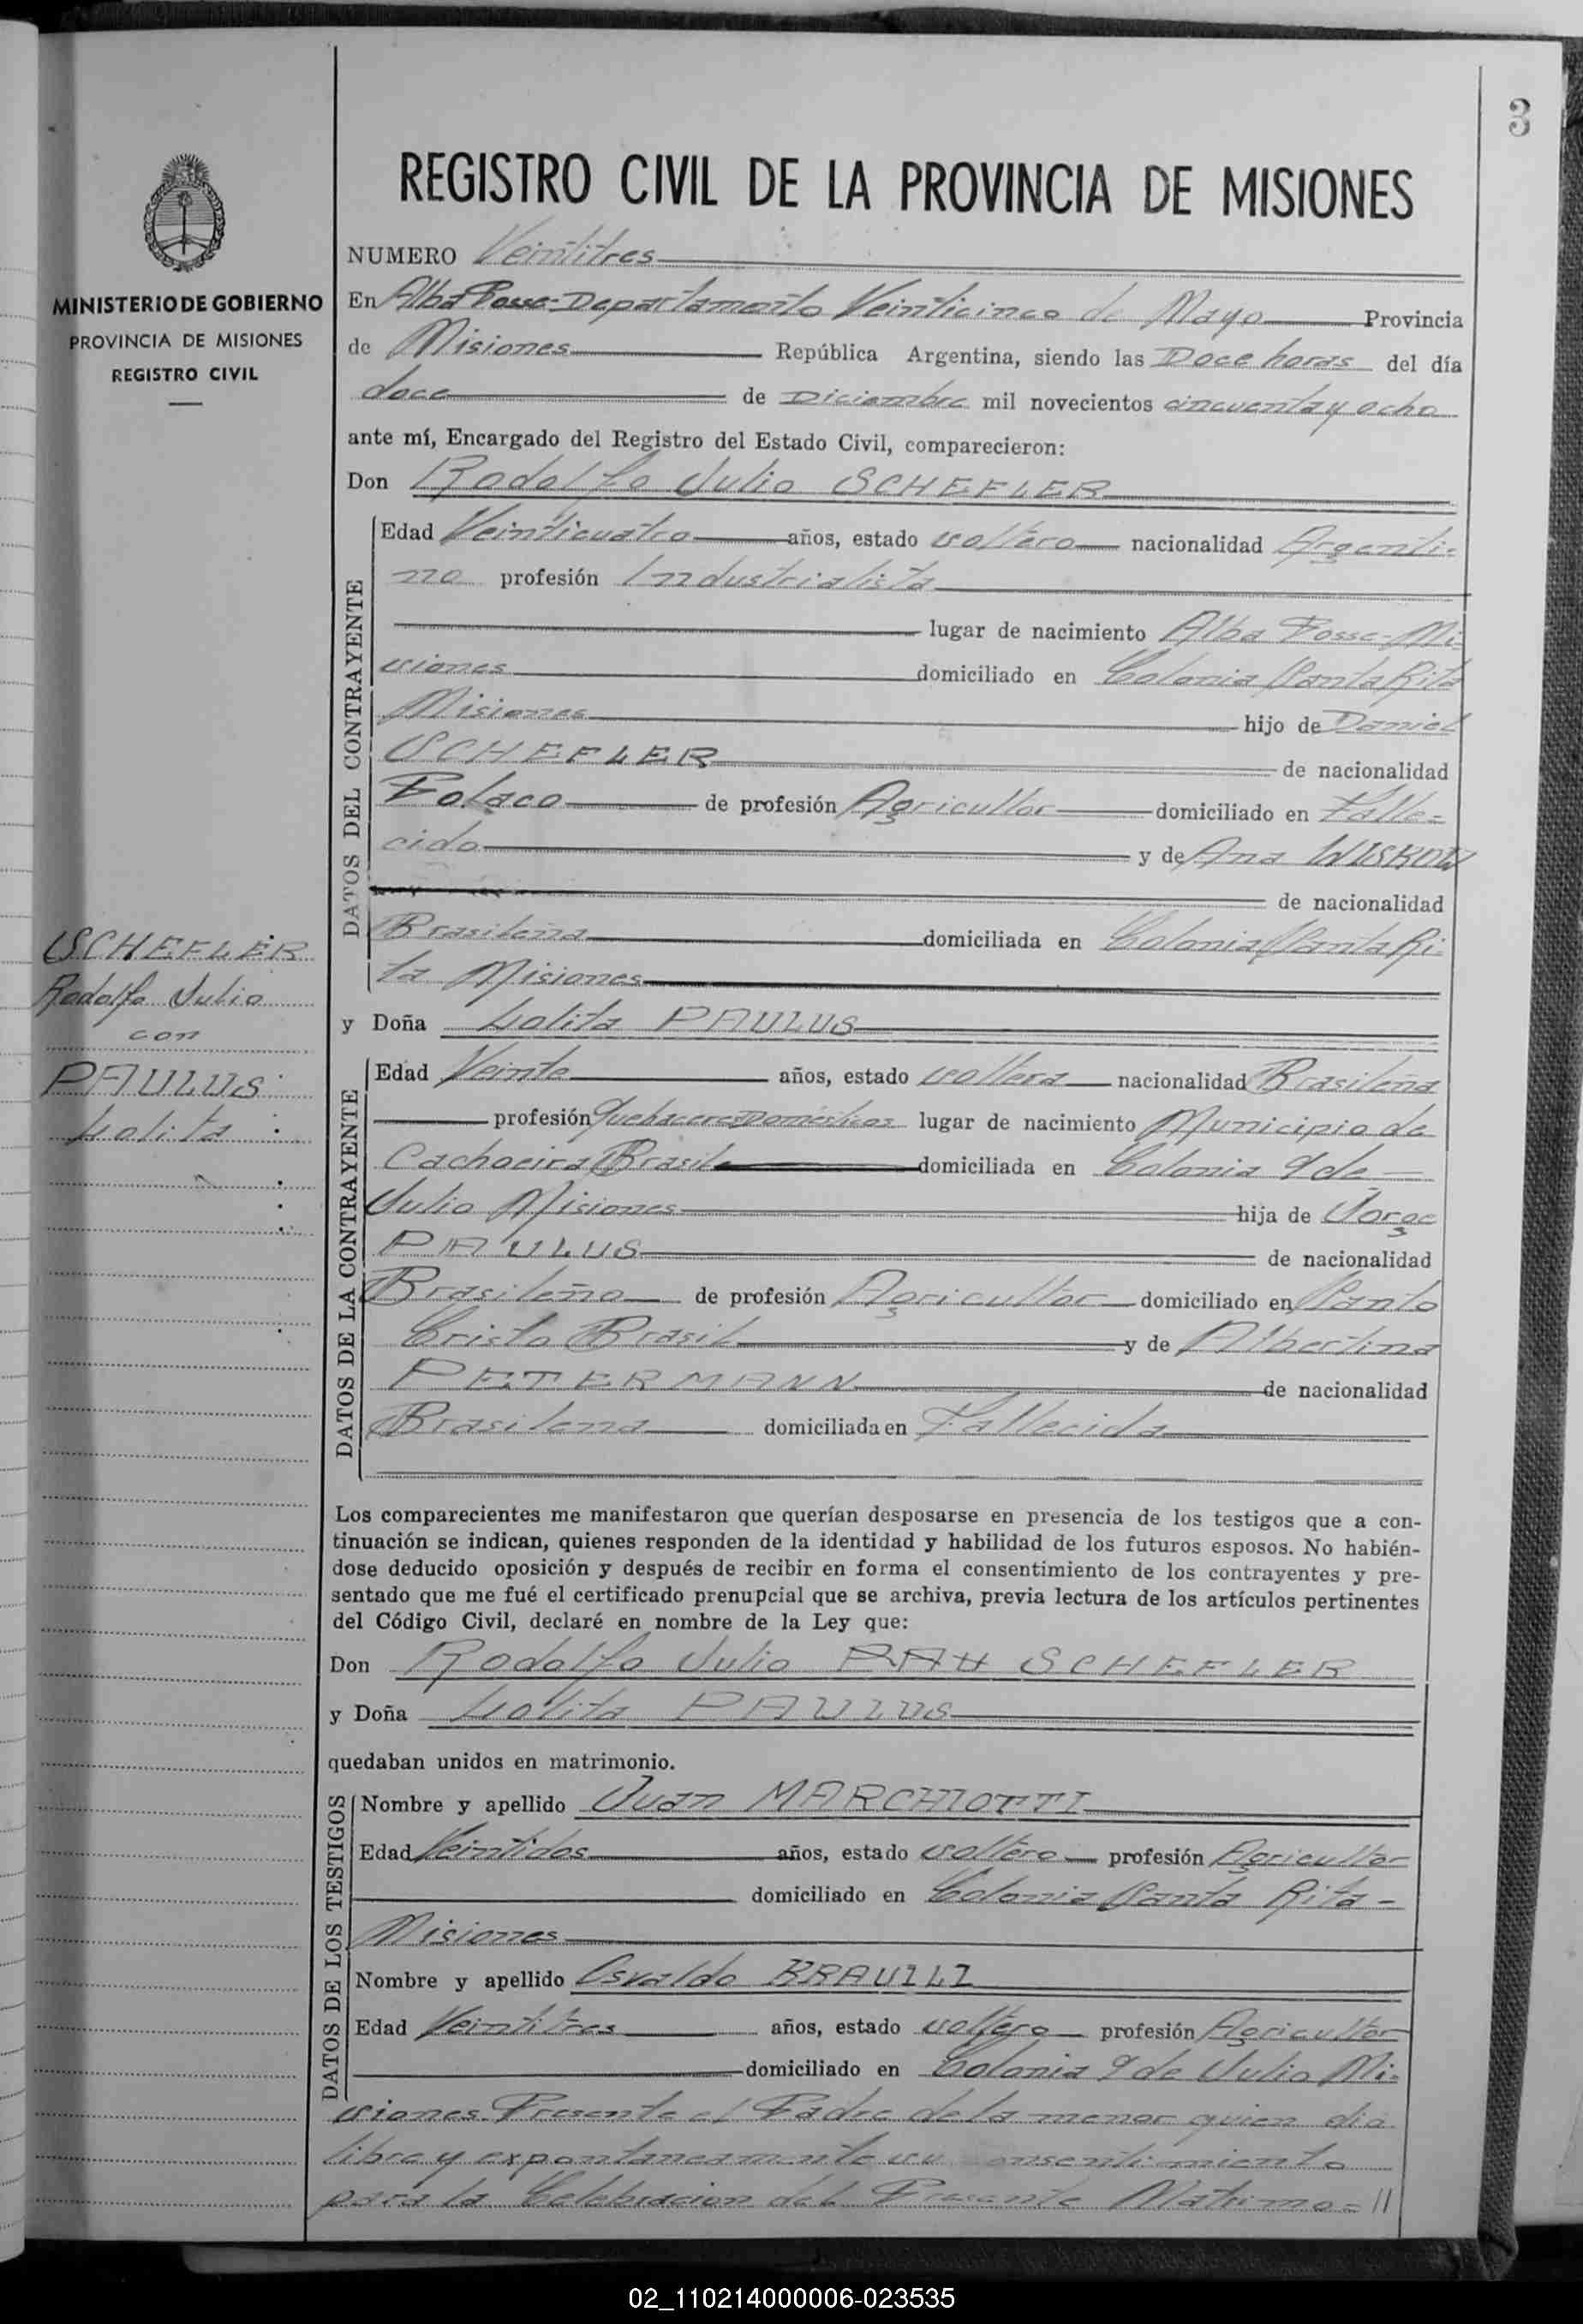 3
REGISTRO CIVIL DE LA PROVINCIA DE MISIONES
MINISTERIO DE GOBIERNO
PROVINCIA DE MISIONES
REGISTRO CIVIL
SCHEFLER
Rodolfo Julio
con
PAULUS
Lolita
NUMERO Veintitres
En Alba Posse-Departamento Veinticinco de Mayo Provincia
de Misiones República Argentina, siendo las Doce horas del día
doce de Diciembre mil novecientos cincuenta y ocho
ante mí, Encargado del Registro del Estado Civil, comparecieron:
Don Rodolfo Julio SCHEFLER
DATOS DEL CONTRAYENTE
Edad Veinticuatro años, estado soltero nacionalidad Argenti=
no profesión Industrialista
lugar de nacimiento Alba Posse-Mi-
siones domiciliado en Colonia Santa Rita
Misiones hijo de Daniel
SCHEFLER de nacionalidad
Polaco de profesión Agricultor domiciliado en Falle=
cido y de Ana WISKOW
de nacionalidad
Brasileña domiciliada en Colonia Santa Ri-
ta Misiones
y Doña Lolita PAULUS
DATOS DE LA CONTRAYENTE
Edad Veinte años, estado soltera nacionalidad Brasileña
profesión Quehaceres Domésticos lugar de nacimiento Municipio de
Cachoeira Brasil domiciliada en Colonia 9 de
Julio Misiones hija de Jorge
PAULUS de nacionalidad
Brasileño de profesión Agricultor domiciliado en Santo
Cristo Brasil y de Albertina
PETERMANN de nacionalidad
Brasilena domiciliada en Fallecida
Los comparecientes me manifestaron que querían desposarse en presencia de los testigos que a con-
tinuación se indican, quienes responden de la identidad y habilidad de los futuros esposos. No habién-
dose deducido oposición y después de recibir en forma el consentimiento de los contrayentes y pre-
sentado que me fué el certificado prenupcial que se archiva, previa lectura de los artículos pertinentes
del Código Civil, declaré en nombre de la Ley que:
Don Rodolfo Julio SCHEFLER
y Doña Lolita PAULUS
quedaban unidos en matrimonio.
DATOS DE LOS TESTIGOS
Nombre y apellido Juan MARCHIOTTI
Edad Veintidos años, estado soltero profesión Agricultor
domiciliado en Colonia Santa Rita -
Misiones
Nombre y apellido Osvaldo BRAULI
Edad Veintitres años, estado soltero profesión Agricultor
domiciliado en Colonia 9 de Julio Mi-
siones. Presente el Padre de la menor quien dió
libre y expontaneamente su consentimiento
para la Celebracion del Presente Matrimo= //
02_110214000006-023535